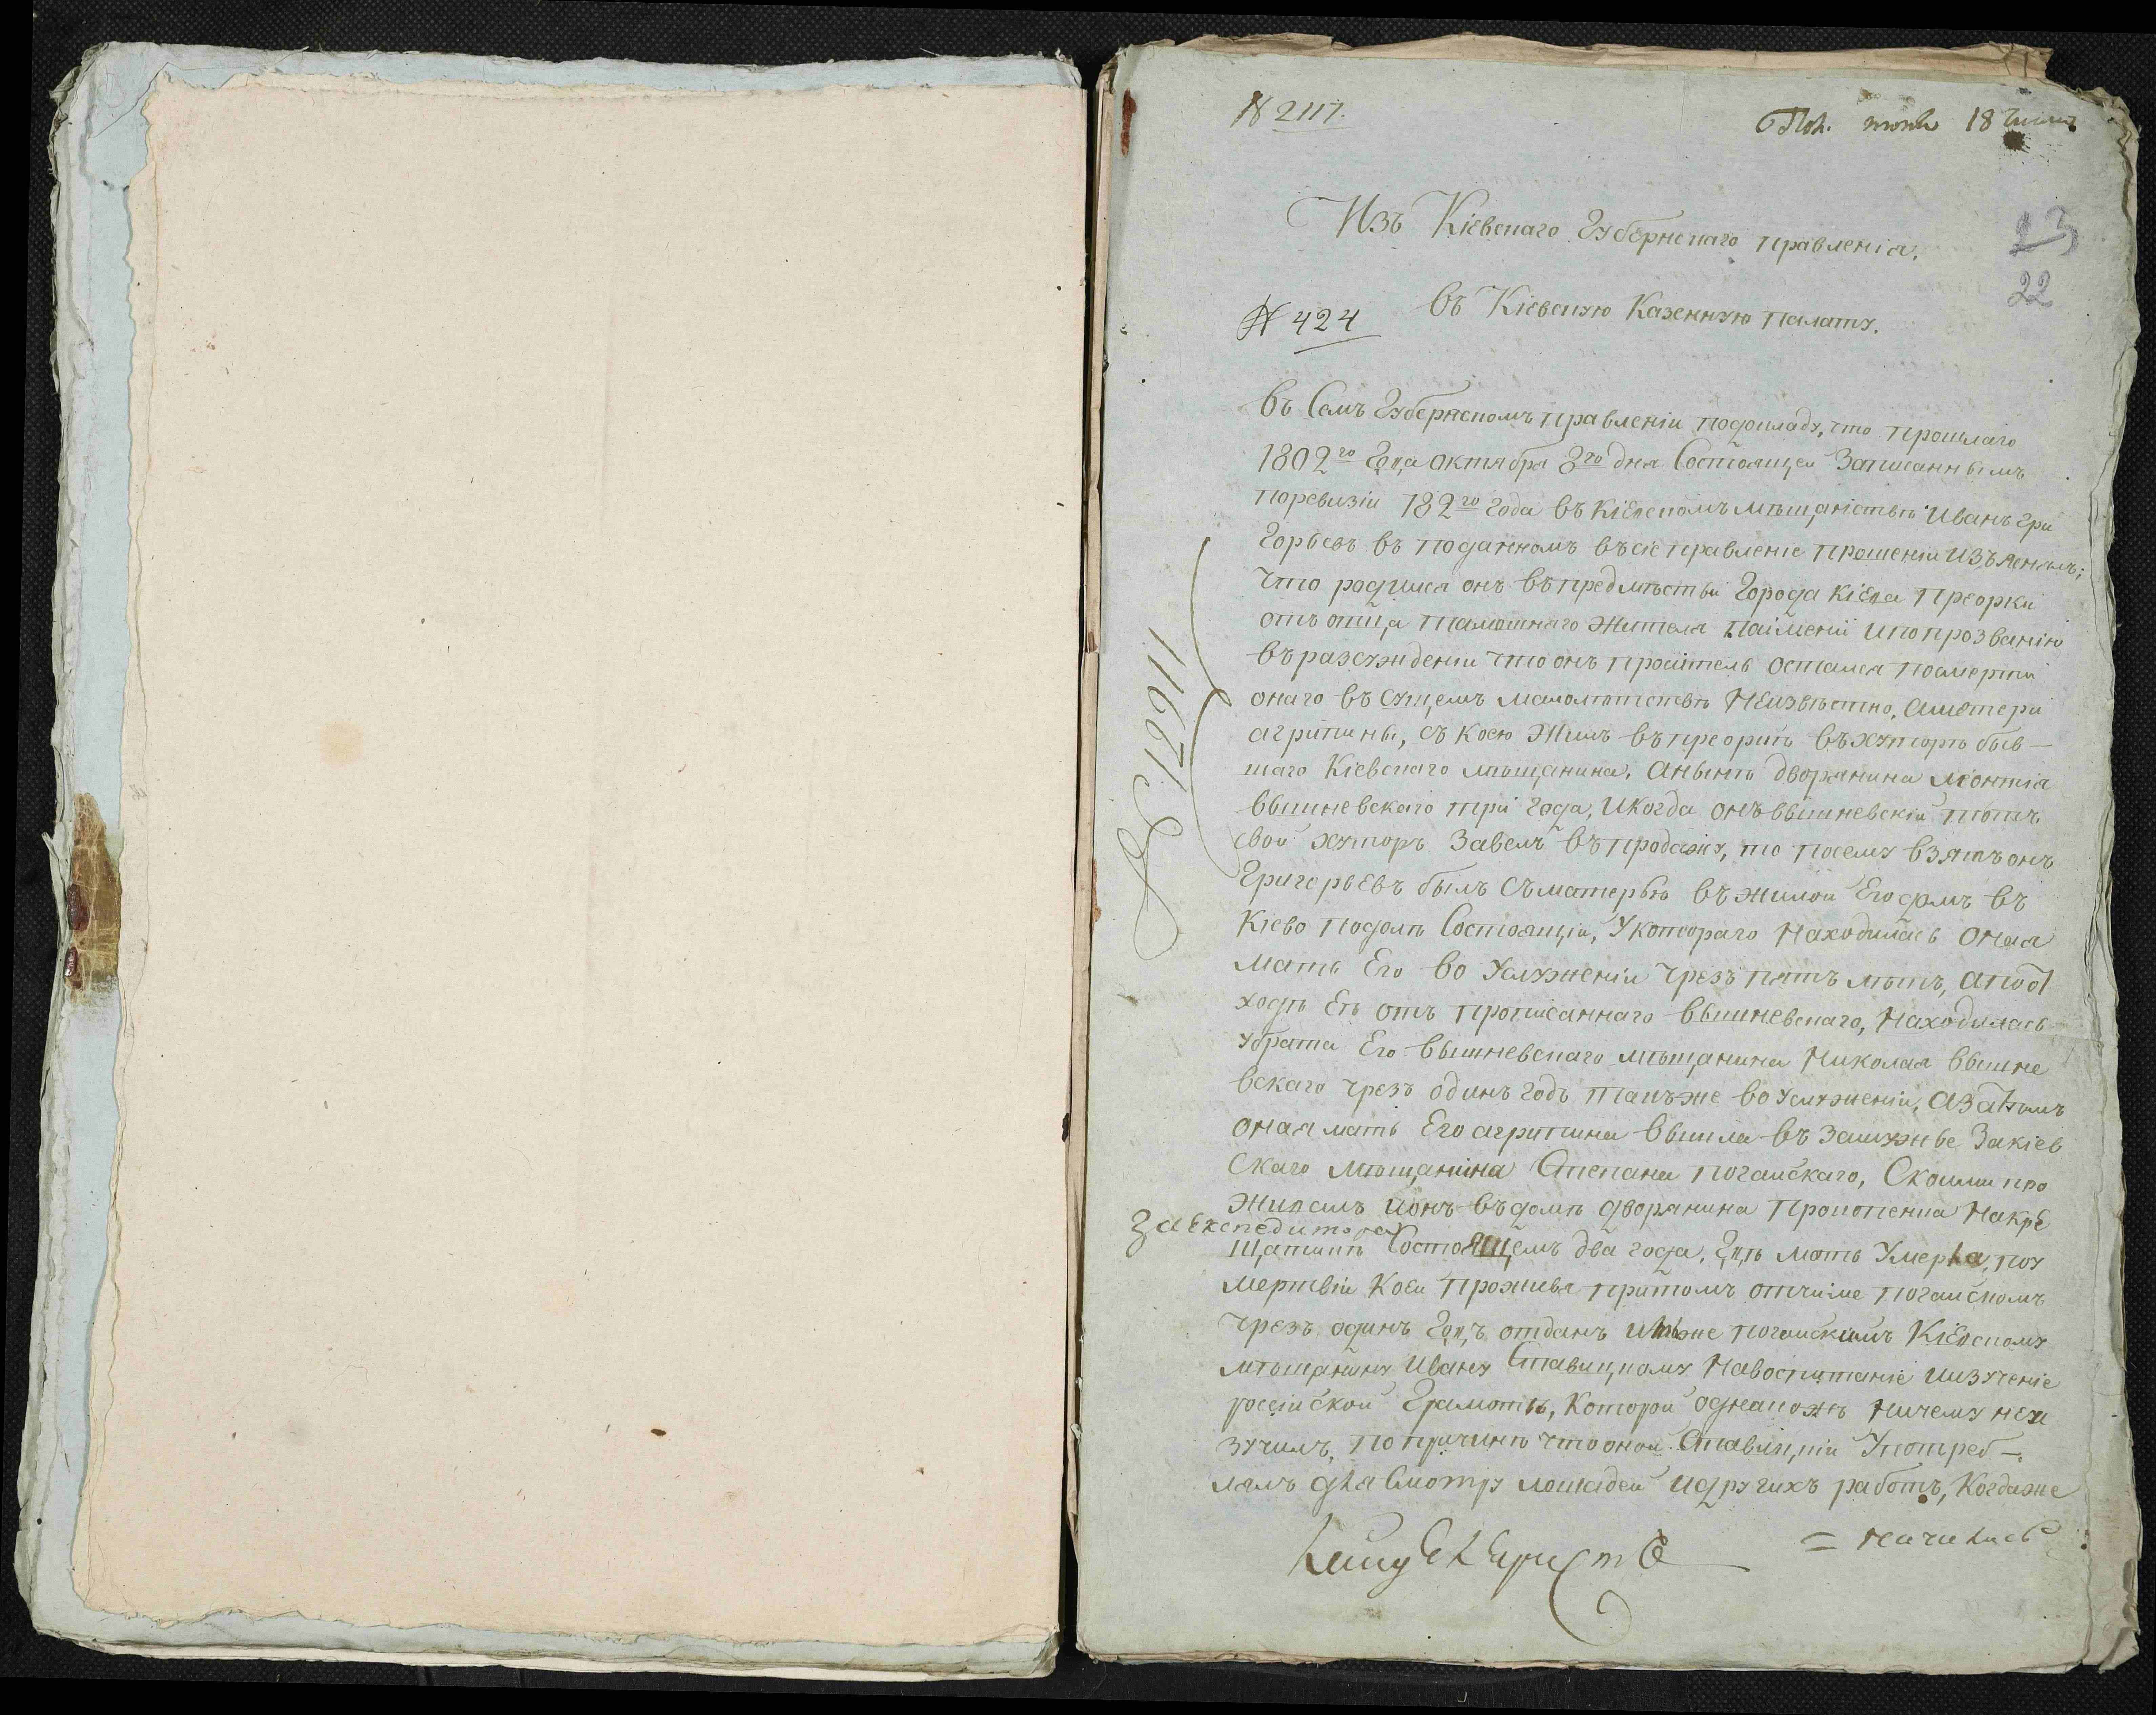 N 2117.
Пол. июня 18 числа
23
22
Изъ Кіевскаго Губернскаго правленія.
въ Кіевскую Казенную палату.
N 424
въ Семъ Губернскомъ правленіи подокладу, что прошлаго
1802го Года октября 8го дня Состоящей Записаннымъ
поревизіи 182го года въ Кіевскомъ мѣщанствѣ Иванъ Гри
горьевъ въ поданномъ въсіе правленіе прошеніи изъяснялъ;
что родился онъ въпредмѣстьи Города Кіева Преорки
отъ отца тамошнаго жителя паімении ипопрозванію
въразсужденіи что онъ проситель остался посмерти
онаго въ сущемъ малолѣтствѣ Неизвѣстно, аматери
агрипины, съ коею жилъ въпреоркѣ въхуторѣ быв–
шаго Кіевскаго мѣщанина, анынѣ дворянина леонтія
вышневскаго три года, икогда онъ вышневскій тотъ
свой хуторъ Завелъ въпродажу, то посему взятъ онъ
Григорьевъ былъ съматерью въжилой Его домъ въ
Кіево подолѣ Состоящій, Укотораго Находилась оная
мать Его во Услуженіи чрезъ пять лѣтъ, апоот
ходѣ Еѣ отъ прописаннаго вышневскаго, Находилась
убрата Его вышневскаго мѣщанина Николая вышне
вскаго чрезъ одинъ годъ такъже воуслуженіи, азатѣмъ
оная мать Его агрипина вышла въ замужье Закіев
скаго мѣщанина Степана погайскаго, Скоими про
живалъ ионъ въдомѣ дворянина Прокопенка Накре
За Експедитора
щатикѣ Состоящемъ два года, Гдѣ мать Умерла, поу
мертвіи Коей проживя притомъ отчиме погайскомъ
чрезъ одинъ Годъ отданъ имъже погайскимъ Кіевскому
мѣщанину Ивану Ставицкому Навоспитаніе иизученіе
россійской Грамоты, Которой однакожъ ничему неи
зучилъ, попричинѣ что оной Ставицкій Употреб–
лялъ для Смотру лошадей идругихъ работъ, Когдаже
= началась